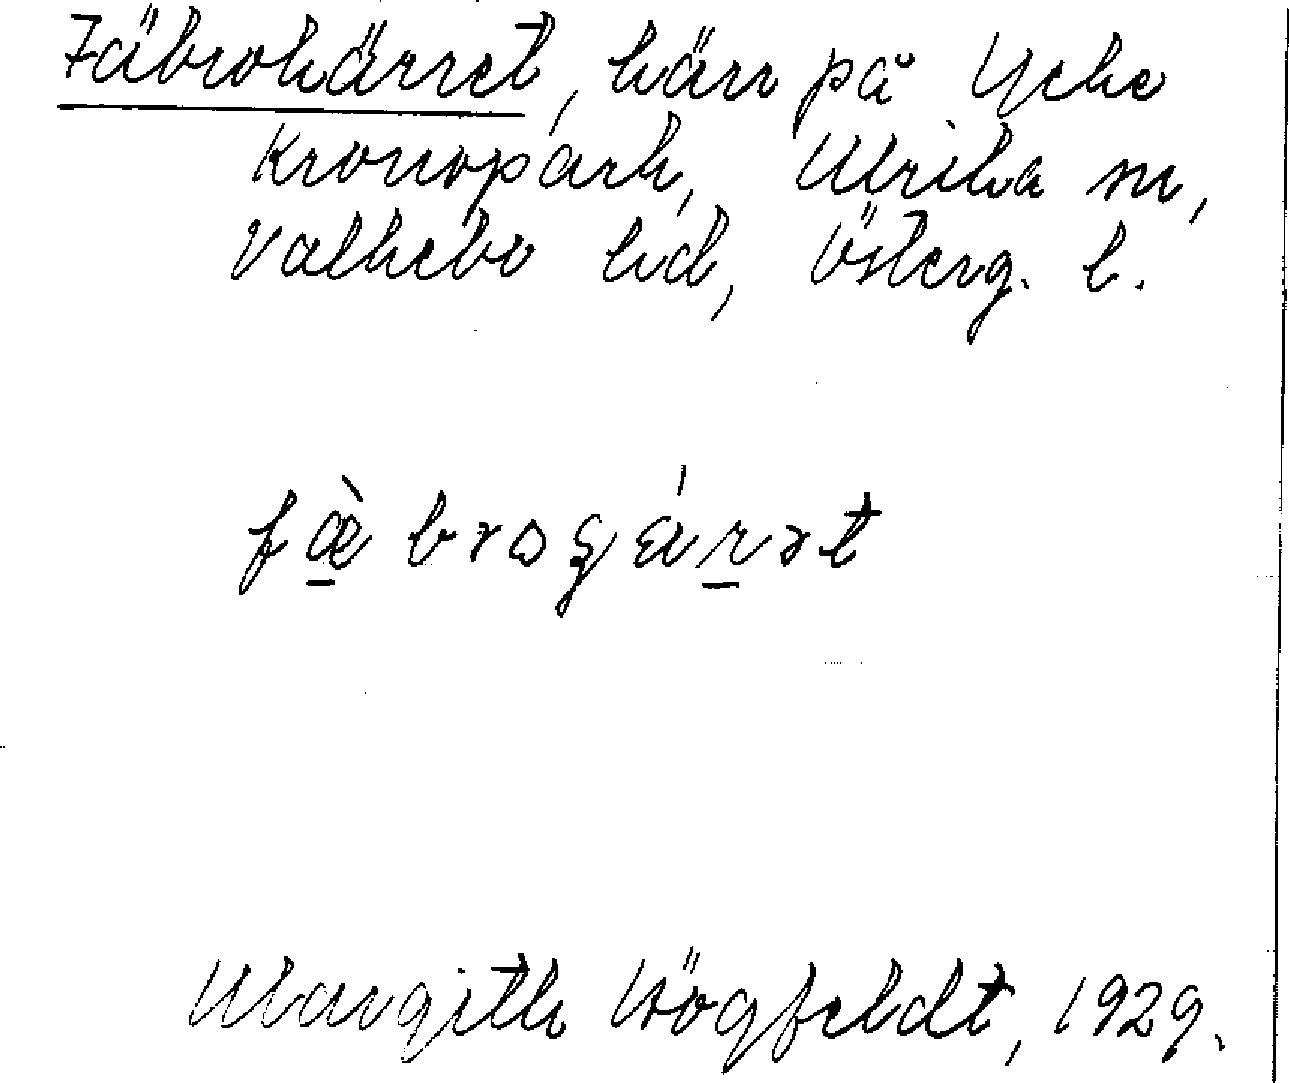 Fäbrokärret, kärr på Ycke
Kronopark, Ulrika sn,
Valkebo hd, Österg. l.
fæ̀ broʒárət
Margith Högfeldt, 1929.